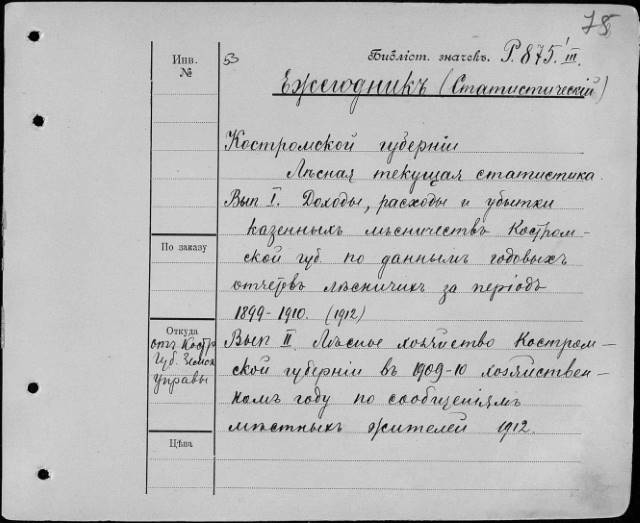 78
Инв.
№
53
Библіот. значекъ. Р.875.'III.
Ежегодникъ (Статистическій)
Костромской губерніи
Лѣсная текущая статистика.
Вып I. Доходы, расходы и убытки
казенныхъ лѣсничествъ Костром-
ской губ. по даннымъ годовыхъ
отчетовъ лѣсничихъ за періодъ
1899-1910. (1912)
По заказу
Откуда
отъ Костр
Губ. Земск
Управы
Вып. II. Лѣсное хозяйство Костром-
ской губерніи въ 1909-10 хозяйствен-
номъ году по сообщеніямъ
мѣстныхъ жителей 1912.
Цѣна